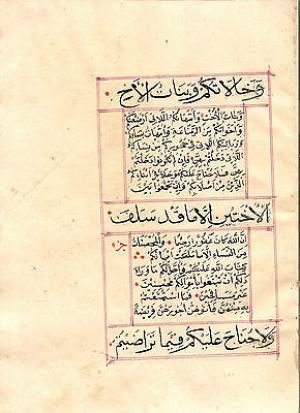 وخالاتكم وبنات الأخ
وبنات الأخت وأمهاتكم اللاتي أرضعنكم
وأخواتكم من الرضاعة وأمهات نسائكم
وربائبكم اللاتي في حجوركم من نسائكم
اللاتي دخلتم بهن فإن لم تكونوا دخلتم
بهن فلا جناح عليكم وحلائل أبنائكم
الذين من أصلابكم وأن تجمعوا بين
الأختين إلا ما قد سلف
إن الله كان غفورا رحيما والمحصنات
من النساء إلا ما ملكت أيمانكم
كتاب الله عليكم وأحل لكم ما وراء
ذلكم أن تبتغوا بأموالكم محصنين
غير مسافحين فما استمتعتم
به منهن فآتوهن أجورهن فريضة
ولا جناح عليكم فيما تراضيتم